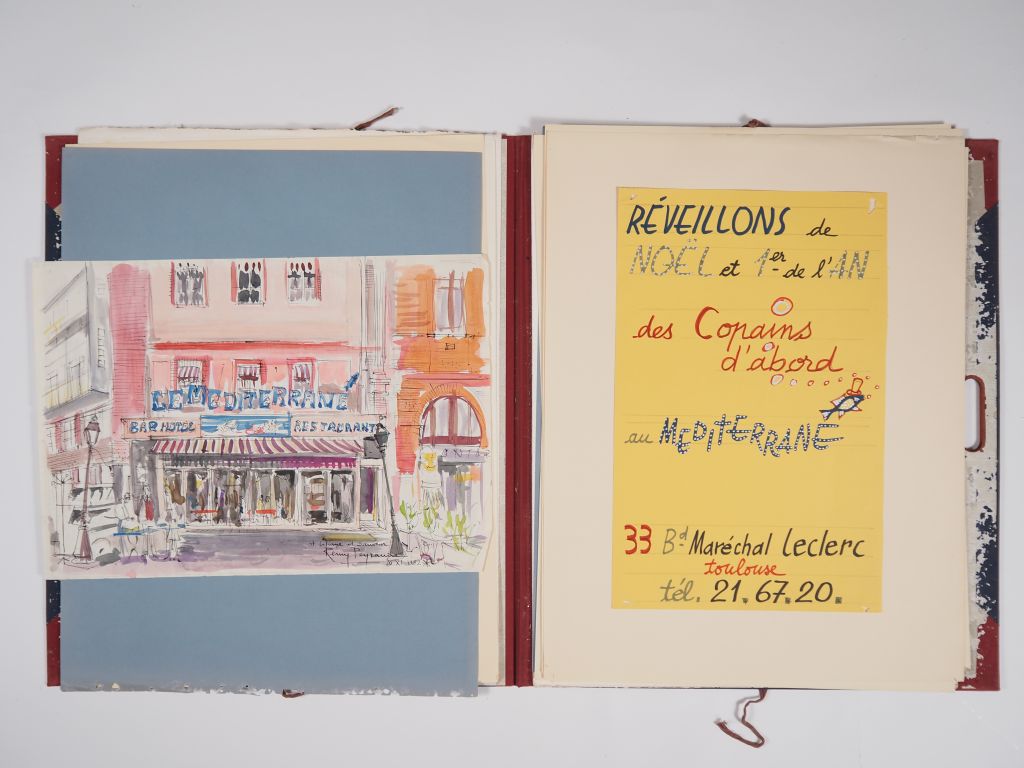 LE MEDITERRANÉ
BAR HOTEL RESTAURANT
Rémy Peyranne
RÉVEILLONS de
NOËL et 1er de l'AN
des Copains
d'abord
au MEDITERRANÉ
33 Bd Maréchal Leclerc
toulouse
tél. 21.67.20.